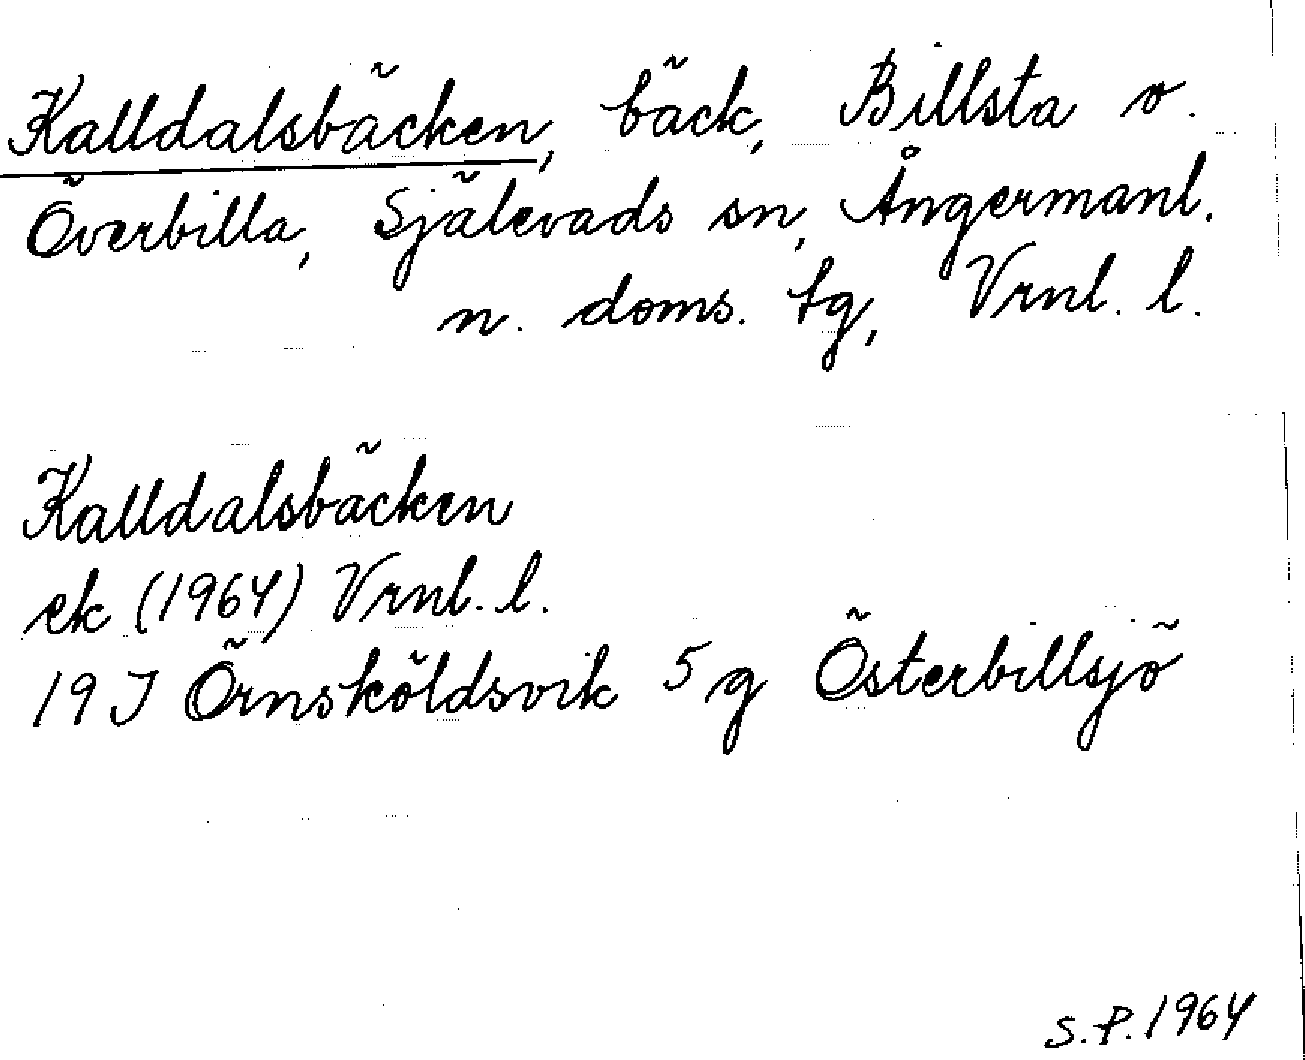 Kalldalsbäcken, bäck, Billsta o.
Överbilla, Själevads sn, Ångermanl.
n. doms. tg, Vrnl. l.
Kalldalsbäcken
ek (1964) Vrnl. l.
19 J Örnsköldsvik 5 g Österbillsjö
S.P. 1964